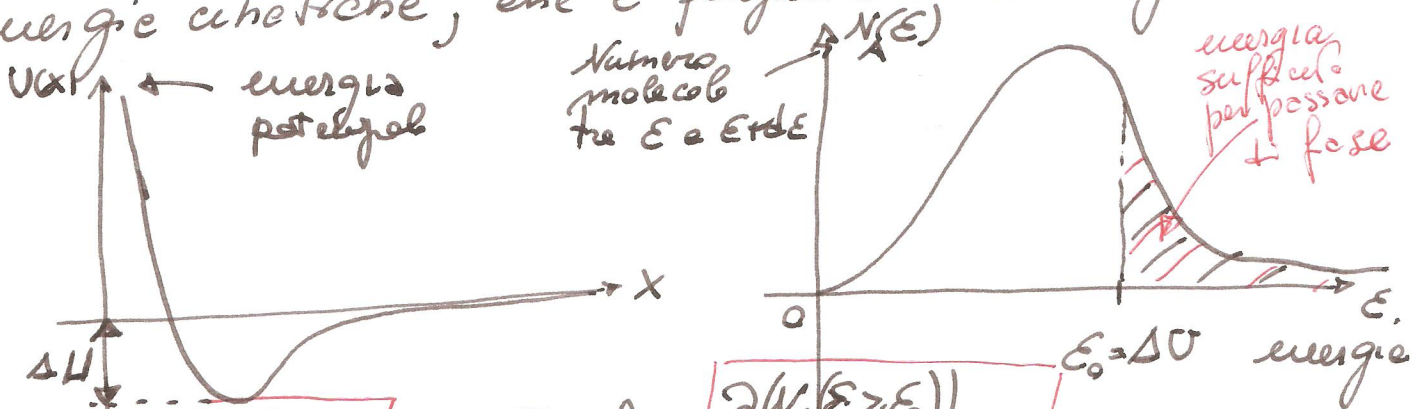 energie cinetiche, che è
U(x)
energia
potenziale
X
ΔU
Numero
molecole
tra ε e ε+dε
N_A(ε)
energia
suffic.
per passare
fase
0
ε.
ε₀=ΔU energie
∂(N (ε>ε₀))